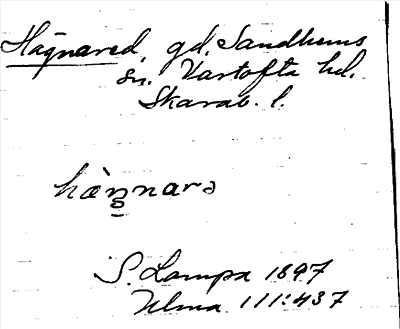 Hägnared, gd. Sandhems
sn. Vartofta hd.
Skarab. l.
hæ̀ŋnarə
S. Lampa 1897
Ulma 111:437